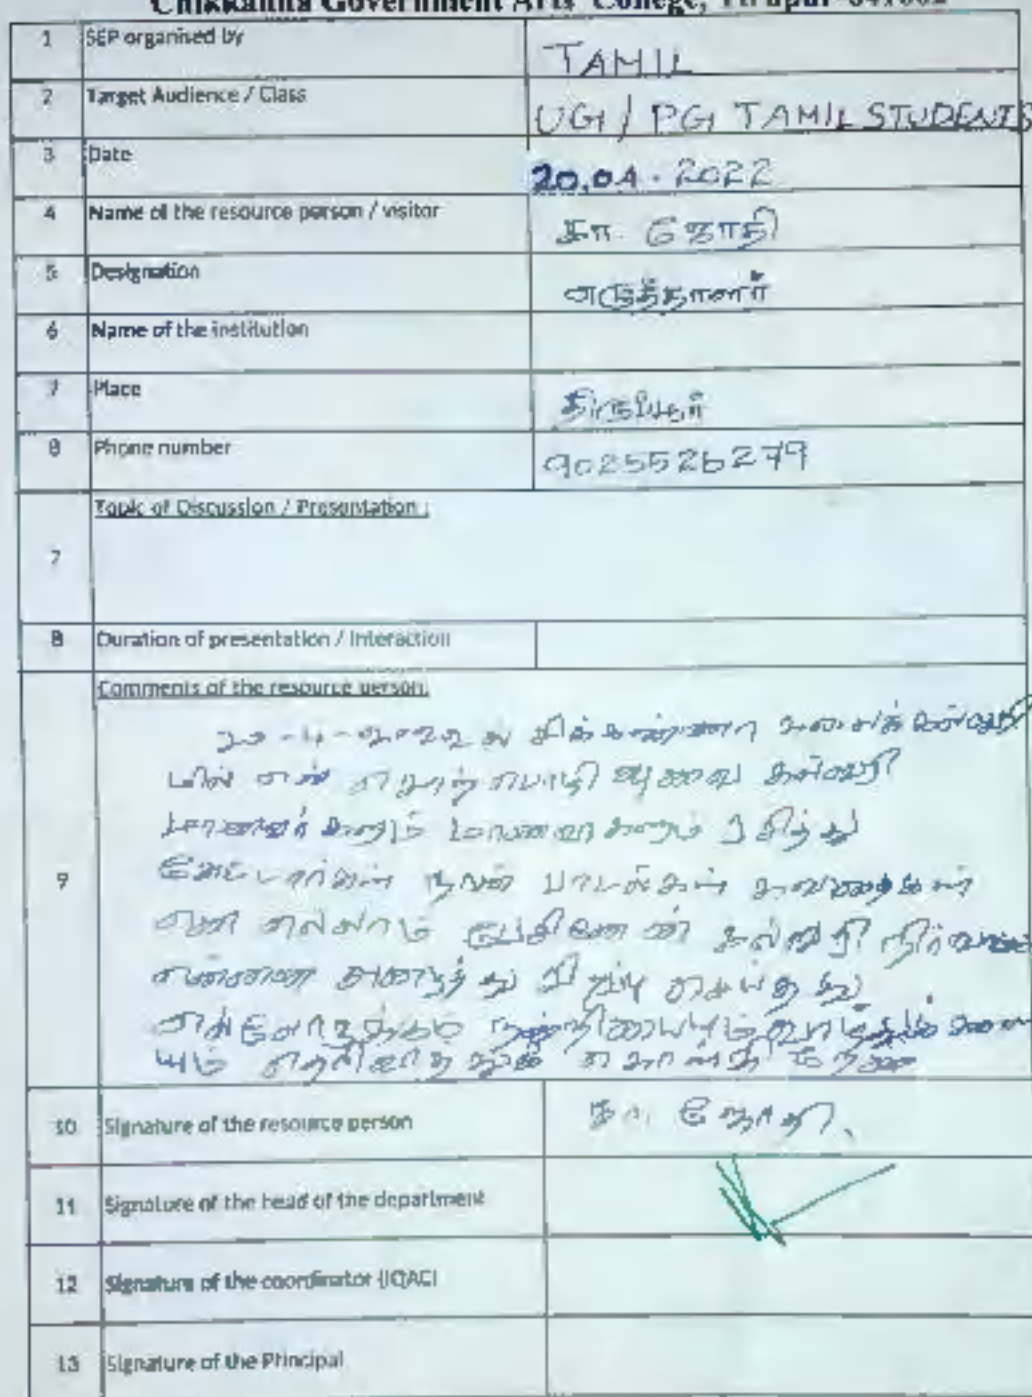 Chikkanna Government Arts College, Tirupur-641602
1 SEP organised by TAMIL
2 Target Audience / Class UG / PG TAMIL STUDENTS
3 Date 20.04.2022
4 Name of the resource person / visitor கா. ஜோதி
5 Designation எழுத்தாளர்
6 Name of the institution
7 Place திருப்பூர்
8 Phone number 9025526279
Topic of Discussion / Presentation :
7
8 Duration of presentation / Interaction
Comments of the resource person:
20-4-2022 ல் சிக்கண்ணா கலைக் கல்லூரி
யில் என் சொற்பொழிவு கல்லூரி
மாணவர்களும் மாணவிகளும் ரசித்து
கேட்டார்கள் நான் பாடல்கள் கவிதைகள்
என எல்லாம் பேசினேன் கல்லூரி
என்னை அழைத்து சிறப்பு செய்தது
9
10 Signature of the resource person கா. ஜோதி.
11 Signature of the head of the department
12 Signature of the coordinator (IQAC)
13 Signature of the Principal